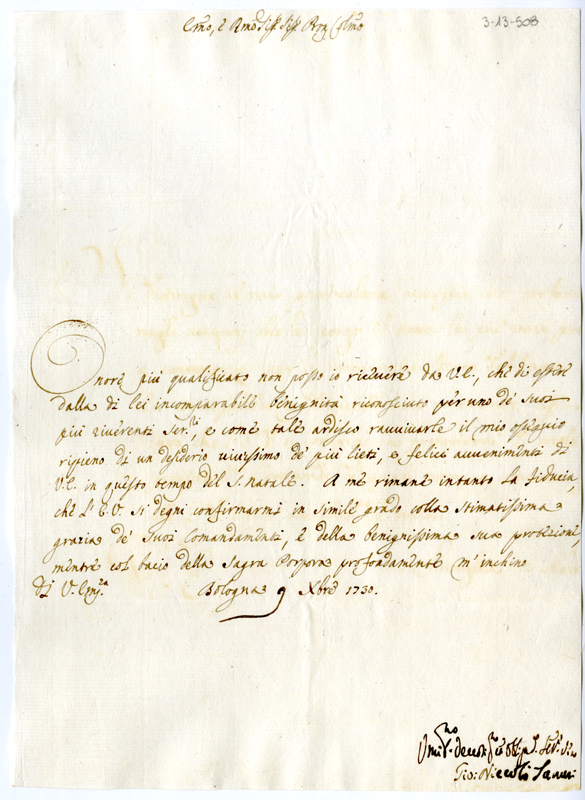 3-13-508
Emo, e Rmo Sig.r Sig.r Pron Colmo
Onore più qualificato non posso io ricevere da V.E., che di essere
dalla di lei incomparabile benignità riconosciuto per uno de' Suoi
più riverenti Ser.ri, e come tale ardisco ravvivarle il mio ossequio
ripieno di un desiderio vivissimo de' più lieti, e felici avvenimenti di
V.E. in questo tempo del S. Natale. A me rimane intanto la fiducia,
che l'E.V. si degni confirmarmi in simile grado colla stimatissima
grazia de' Suoi Comandamenti, e della benignissima sua protezione,
mentre col bacio della Sagra Porpora profondamente m'inchino
Di V. Em.za Bologna 9 Xbre 1730.
Gio: Niccolò